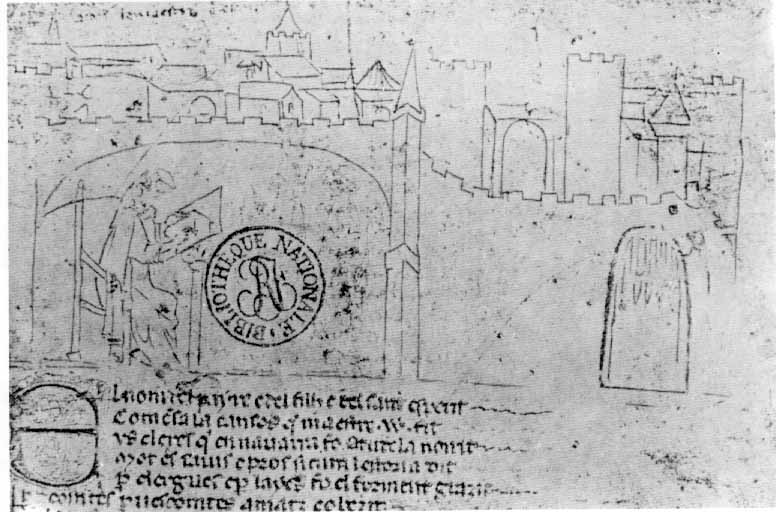 BIBLIOTHÈQUE NATIONALE
BN
El nom del payre e del filh e del sant esperit
Comēsa la cansos q̄ maestre .W. fit
us clercs q̄ en navarra fo a tudela noirit
mot es savis e pros si cum lestoria dit
p̄ clergues e p̄ laycs fo el forment grazit
p̄ comtes p̄ vescomtes amatz e obezit